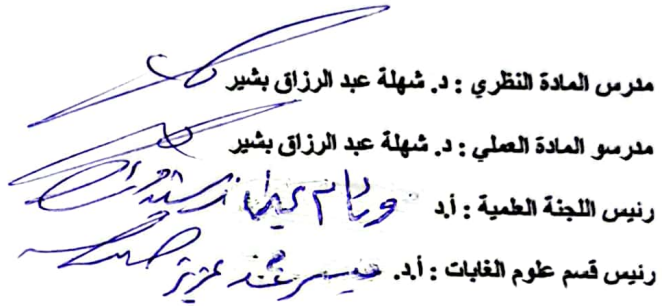 مدرس المادة النظري : د. شهلة عبد الرزاق بشير
مدرسو المادة العملي : د. شهلة عبد الرزاق بشير
رئيس اللجنة العلمية : أ.د
رئيس قسم علوم الغابات : أ.د. ميسر محمد عزيز